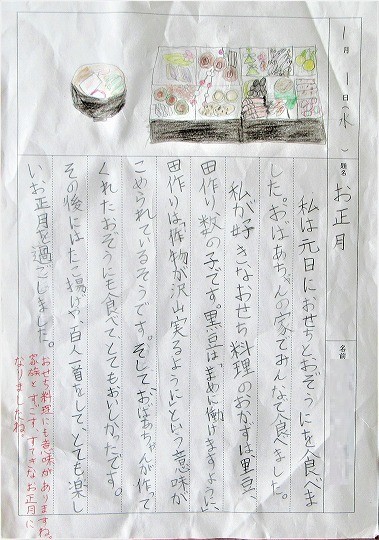 1月1日(水)
題名 お正月
名前
私は元日におせちとおぞうにを食べま
した。おばあちゃんの家でみんなで食べました。
私が好きなおせち料理のおかずは、黒豆、
田作り、数の子です。黒豆は、「まめに働けますように」、
田作りは、「作物が沢山実るように」という意味が
こめられているそうです。そしておばあちゃんが作って
くれたおぞうにも食べて、とてもおいしかったです。
その後にはたこ揚げや、百人一首をして、とても楽し
いお正月を過ごしました。
おせち料理にも意味がありますね。
家族とすごす、すてきなお正月に
なりましたね。